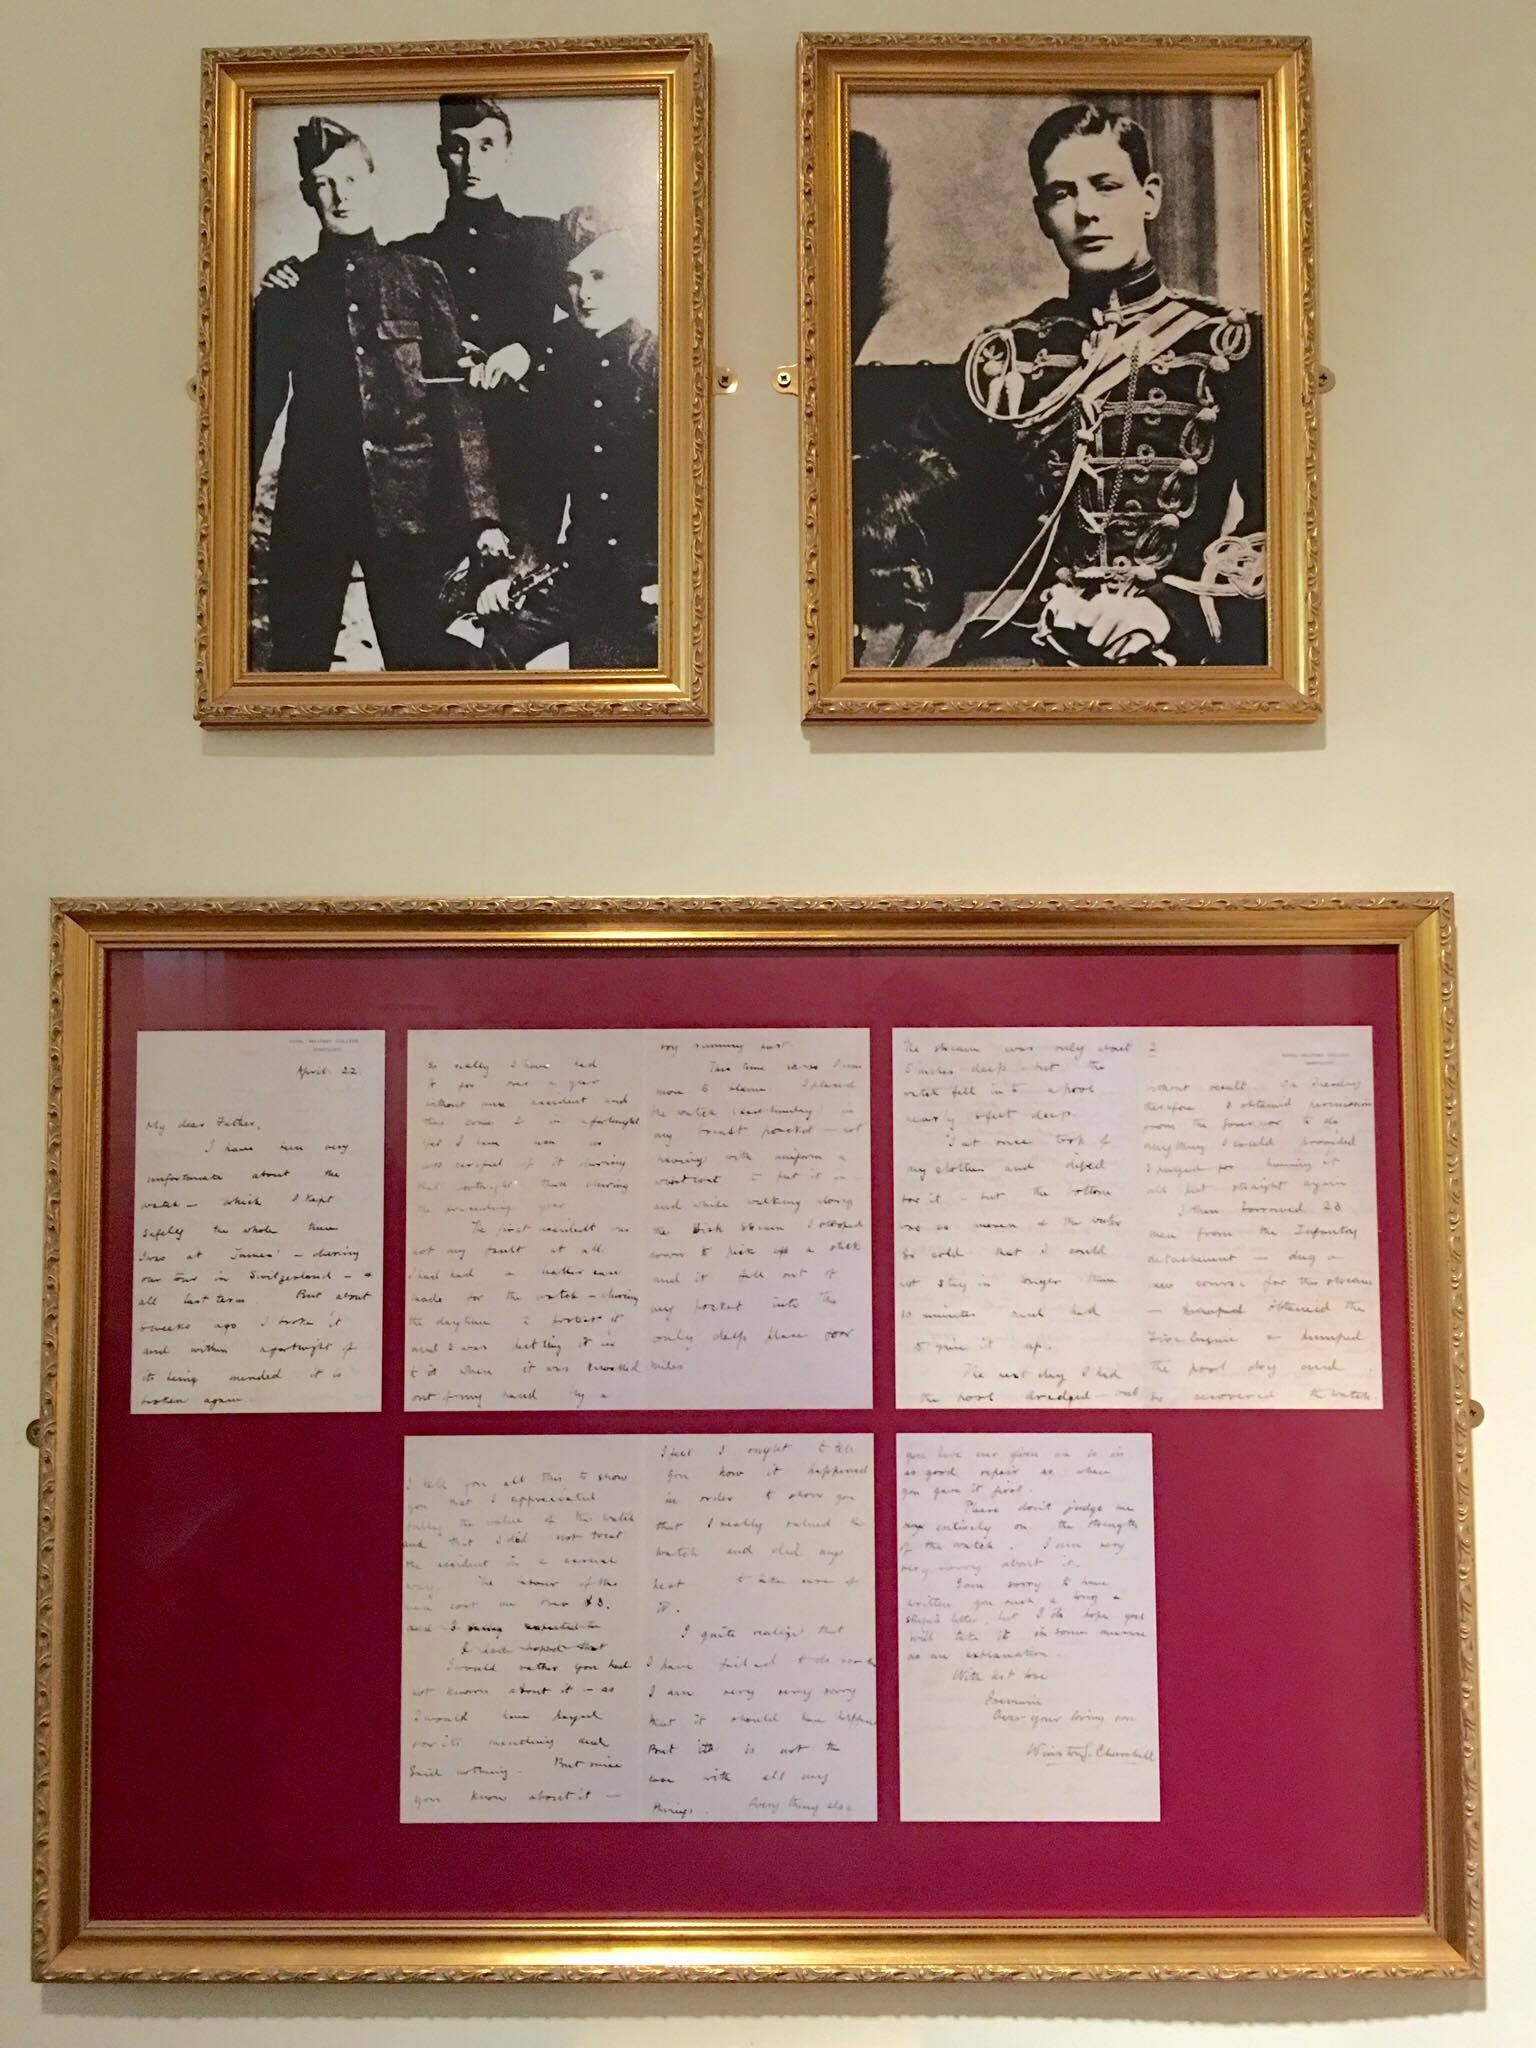 ROYAL MILITARY COLLEGE
SANDHURST
April 22
My dear Father,
I have been very
unfortunate about the
watch — which I kept
safely the whole time
I was at James' — during
our tour in Switzerland — &
all last term. But about
6 weeks ago I broke it
and within a fortnight of
its being mended it is
broken again.
So really I have had
it for over a year
without an accident and
then come 2 in a fortnight
yet I have been as
careful of it during
that fortnight as during
the preceding year.
The first accident was
not my fault at all.
I had had a leather case
made for the watch — during
the daytime to protect it
and I was putting it in
to it when it was knocked
out of my hand by a
boy running past.
This time I am
more to blame. I placed
the watch (last Sunday) in
my breast pocket — not
having with uniform a
waistcoat to put it in —
and while walking along
the Wish Stream I stooped
down to pick up a stick
and it fell out of
my pocket into the
only deep place for
miles
The stream was only about
5 inches deep — but the
watch fell into a pool
nearly 6 feet deep.
I at once took off
my clothes and dived
for it — but the bottom
was so uneven & the water
so cold that I could
not stay in longer than
10 minutes and had
to give it up.
The next day I had
the pool dredged — but
2
ROYAL MILITARY COLLEGE
SANDHURST
without result. On Tuesday
therefore I obtained permission
from the Governor to do
anything I could provided
I paid for having it
all put straight again
I then borrowed 23
men from the Infantry
detachment — dug a
new course for the stream
— obtained the
fire engine & pumped
the pool dry and
so recovered the watch.
I tell you all this to show
you that I appreciated
fully the value of the watch
and that I did not treat
the accident in a casual
way. The labour of the
men cost me over £3.
I would rather you had
not known about it — as
I would have payed
for its mending and
said nothing. But since
you know about it —
I feel I ought to tell
you how it happened
in order to show you
that I really valued the
watch and did my
best to take care of
it.
I quite realize that
I have failed to do so &
I am very very sorry
that it should have happened
But it is not the
case with all my
things. Everything else
you have ever given me is in
as good repair as when
you gave it first.
Please don't judge me
entirely on the strength
of the watch. I am very
very sorry about it.
I am sorry to have
written you such a long &
stupid letter, but I do hope you
will take it in some measure
as an explanation.
With best love
I remain
Ever your loving son
Winston S. Churchill